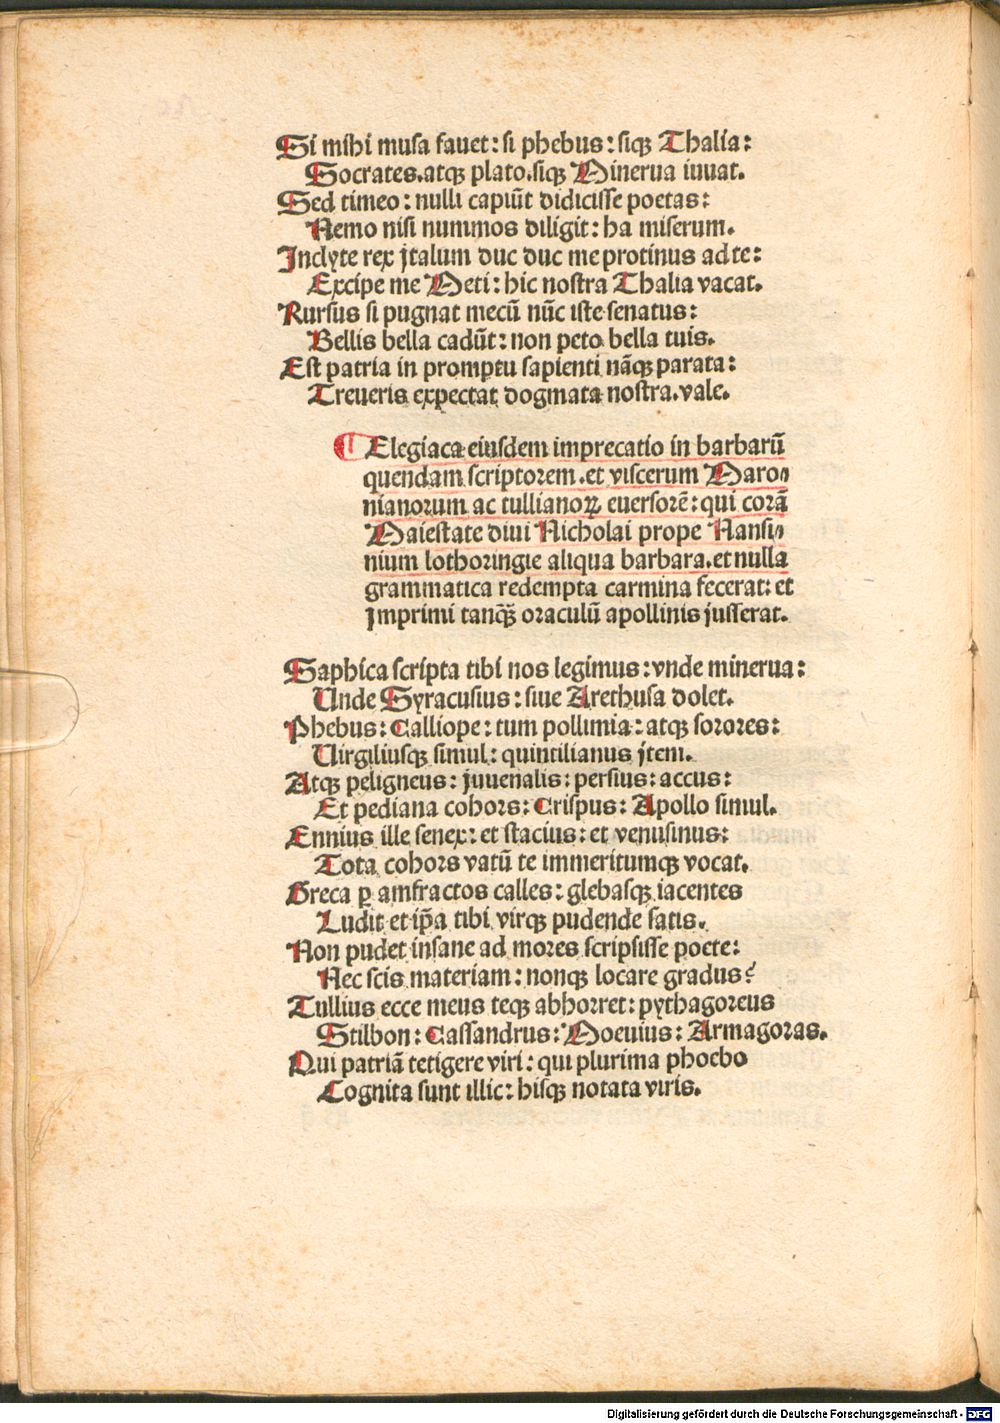 Si mihi musa fauet: si phebus: siqꝫ Thalia:
Socrates.atqꝫ plato.siqꝫ Minerua iuuat.
Sed timeo: nulli capiūt didicisse poetas:
Nemo nisi nummos diligit: ha miserum.
Inclyte rex jtalum duc duc me protinus ad te:
Excipe me Meti: hic nostra Thalia vacat.
Rursus si pugnat mecū nūc iste senatus:
Bellis bella cadūt: non peto bella tuis.
Est patria in promptu sapienti nāqꝫ parata:
Treueris expectat dogmata nostra.vale.
¶ Elegiaca eiusdem imprecatio in barbarū
quendam scriptorem.et viscerum Maro⸗
nianorum ac tullianoꝝ euersorē: qui corā
Maiestate diui Nicholai prope Nansi⸗
nium lothoringie aliqua barbara.et nulla
grammatica redempta carmina fecerat: et
Imprimi tanqᷓꝫ oraculū apollinis jusserat.
Saphica scripta tibi nos legimus: vnde minerua:
Unde Syracusius: siue Arethusa dolet.
Phebus: Calliope: tum pollimia: atqꝫ sorores:
Uirgiliusqꝫ simul: quintilianus jtem.
Atqꝫ peligneus: juuenalis: persius: accus:
Et pediana cohors: Crispus: Apollo simul.
Ennius ille senex: et stacius: et venusinus:
Tota cohors vatū te immeritumqꝫ vocat.
Greca ꝑ amfractos calles: glebasqꝫ iacentes
Ludit et ip̄a tibi virqꝫ pudende satis.
Non pudet insane ad mores scripsisse poete:
Nec scis materiam: nonqꝫ locare gradus?
Tullius ecce meus teqꝫ abhorret: pythagoreus
Stilbon: Cassandrus: Moeuius: Armagoras.
Qui patriā tetigere viri: qui plurima phoebo
Cognita sunt illic: hisqꝫ notata viris.
Digitalisierung gefördert durch die Deutsche Forschungsgemeinschaft - DFG